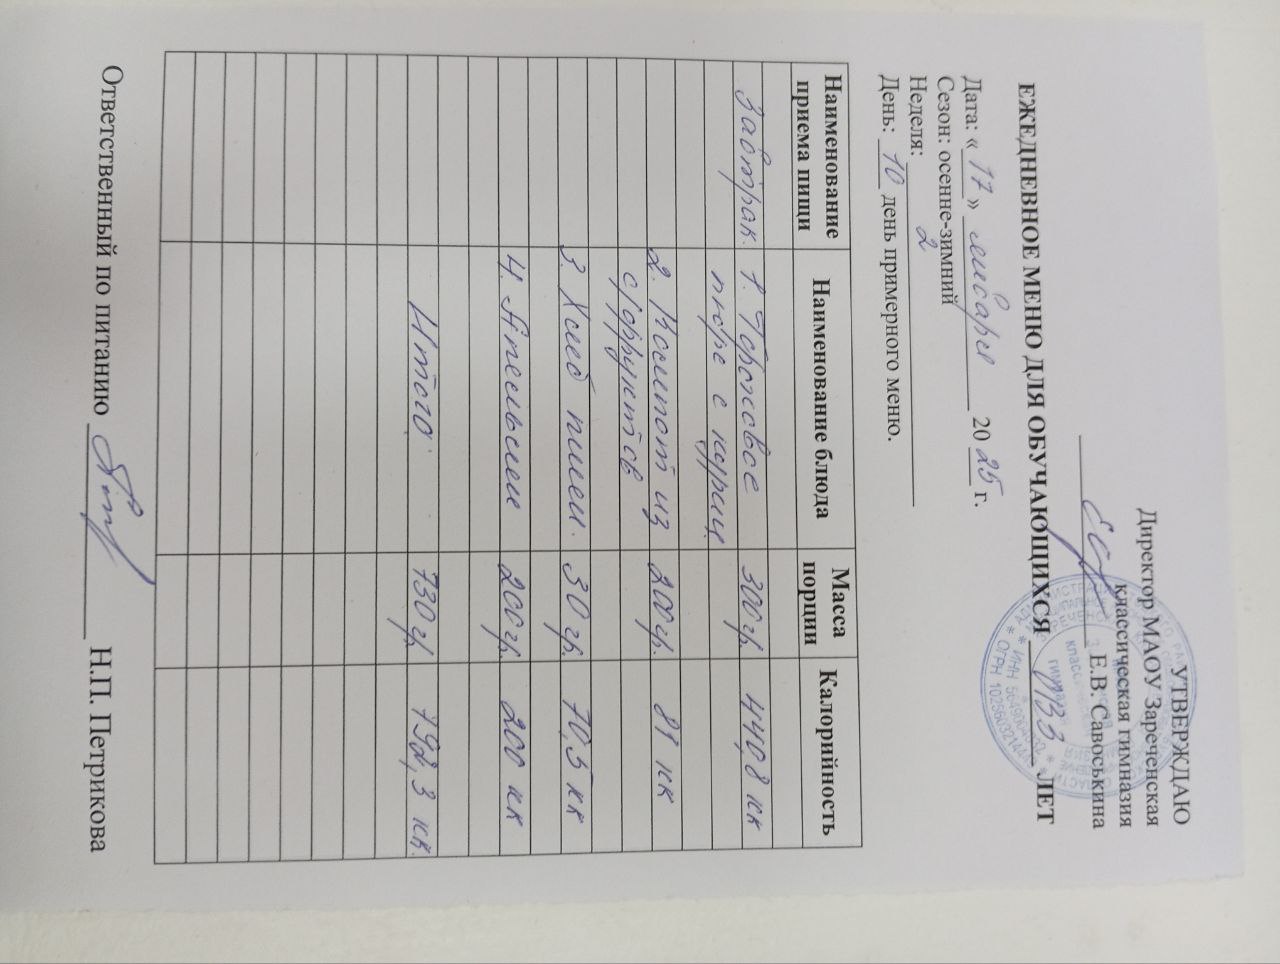 УТВЕРЖДАЮ
Директор МАОУ Зареченская
классическая гимназия
Е.В. Савоськина
ЕЖЕДНЕВНОЕ МЕНЮ ДЛЯ ОБУЧАЮЩИХСЯ ОВЗ ЛЕТ
Дата: « 17 » января 20 25 г.
Сезон: осенне-зимний
Неделя: 2
День: 10 день примерного меню.
Наименование приема пищи Наименование блюда Масса порции Калорийность
Завтрак. 1. Гороховое 300гр. 440,8 кк
пюре с куриц
2. Компот из 200гр. 81 кк
с/фруктов
3. Хлеб пшен. 30 гр. 70,5 кк
4. Апельсин 200гр. 200 кк
Итого: 730гр 792,3 кк.
Ответственный по питанию Н.П. Петрикова